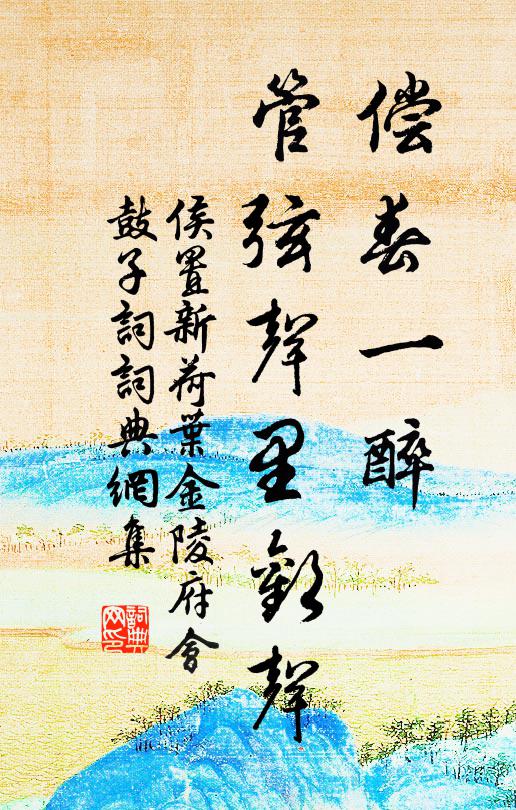 偿春一醉
管弦聲里歡聲
侯置新荷葉金陵府會
鼓子詞詞典網集
詞典
网印